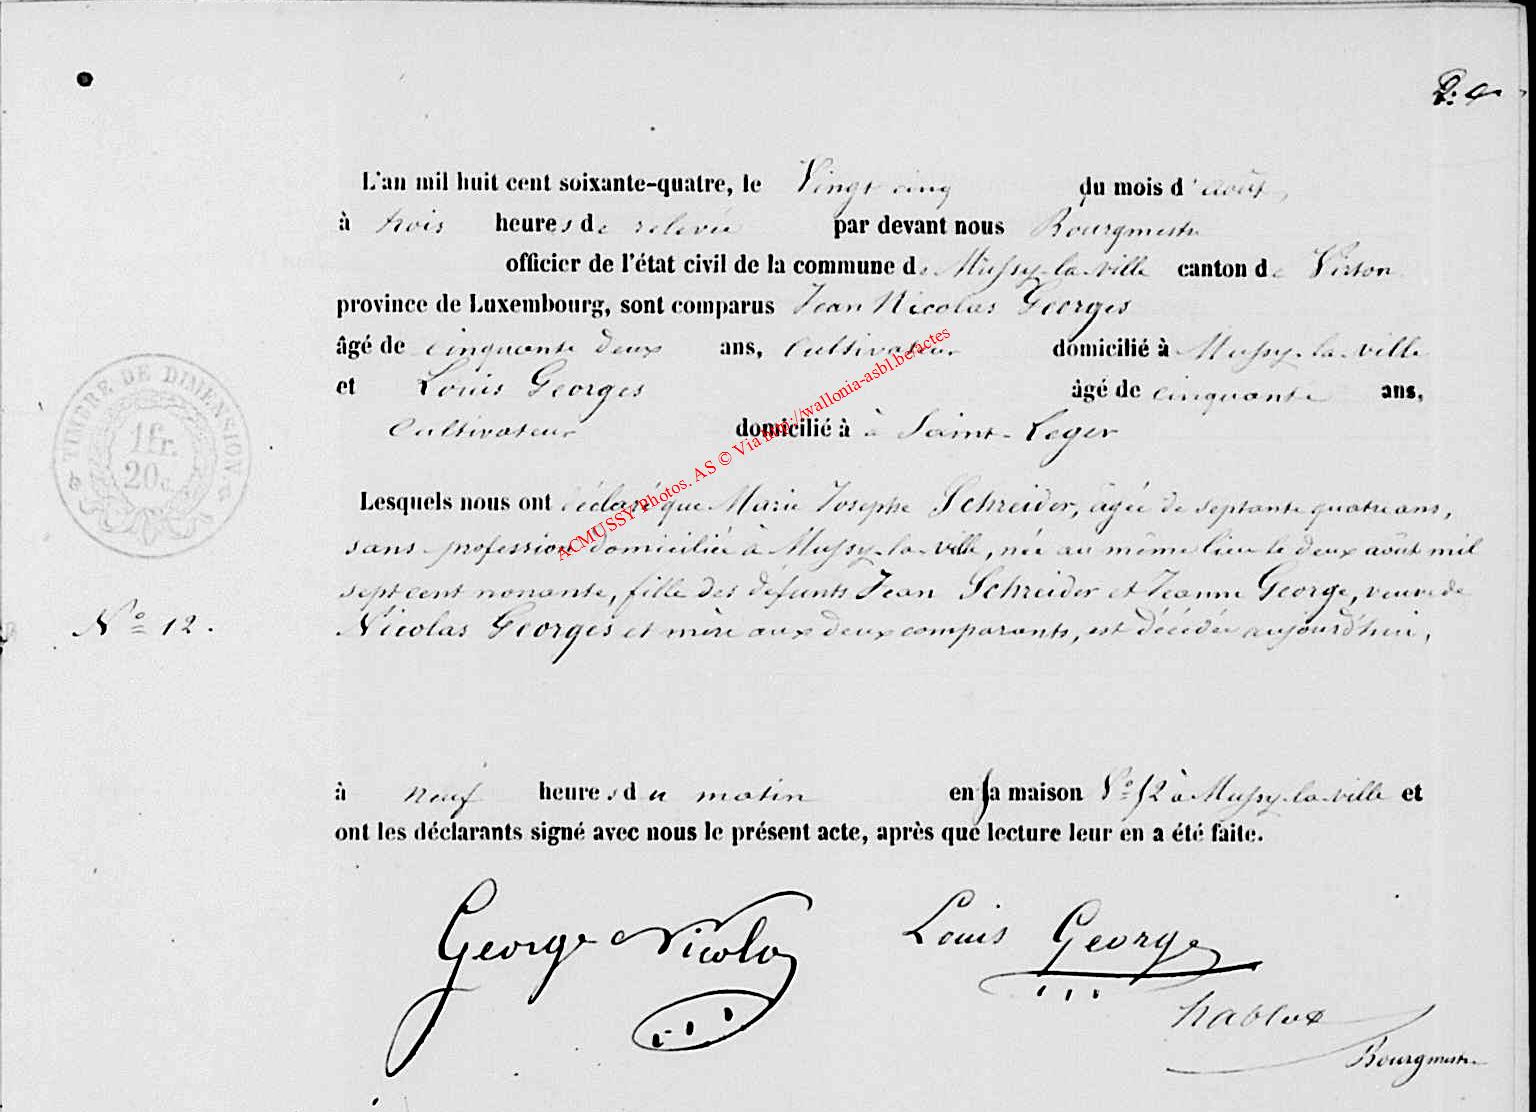 L'an mil huit cent soixante-quatre, le Vingt cinq du mois d'août,
à trois heures de relevée par devant nous Bourgmestre
officier de l'état civil de la commune de Mussy-la-ville canton de Virton
province de Luxembourg, sont comparus Jean Nicolas Georges
âgé de cinquante deux ans, Cultivateur domicilié à Mussy-la-ville
et Louis Georges âgé de cinquante ans,
Cultivateur domicilié à à Saint-Leger
TIMBRE DE DIMENSION
1 fr.
20 c.
Lesquels nous ont déclaré que Marie Josephe Schreider, âgée de septante quatre ans,
sans profession domiciliée à Mussy-la-ville, née au même lieu le deux août mil
sept cent nonante, fille des défunts Jean Schreider et Jeanne George, veuve de
No 12.
Nicolas Georges et mère aux deux comparants, est décédée aujourd'hui,
à neuf heures du matin en sa maison No 52 à Mussy-la-ville et
ont les déclarants signé avec nous le présent acte, après que lecture leur en a été faite.
George Nicola
Louis George
Bourgmestre
ACMUSSY Photos. AS © Via http://wallonia-asbl.be/actes